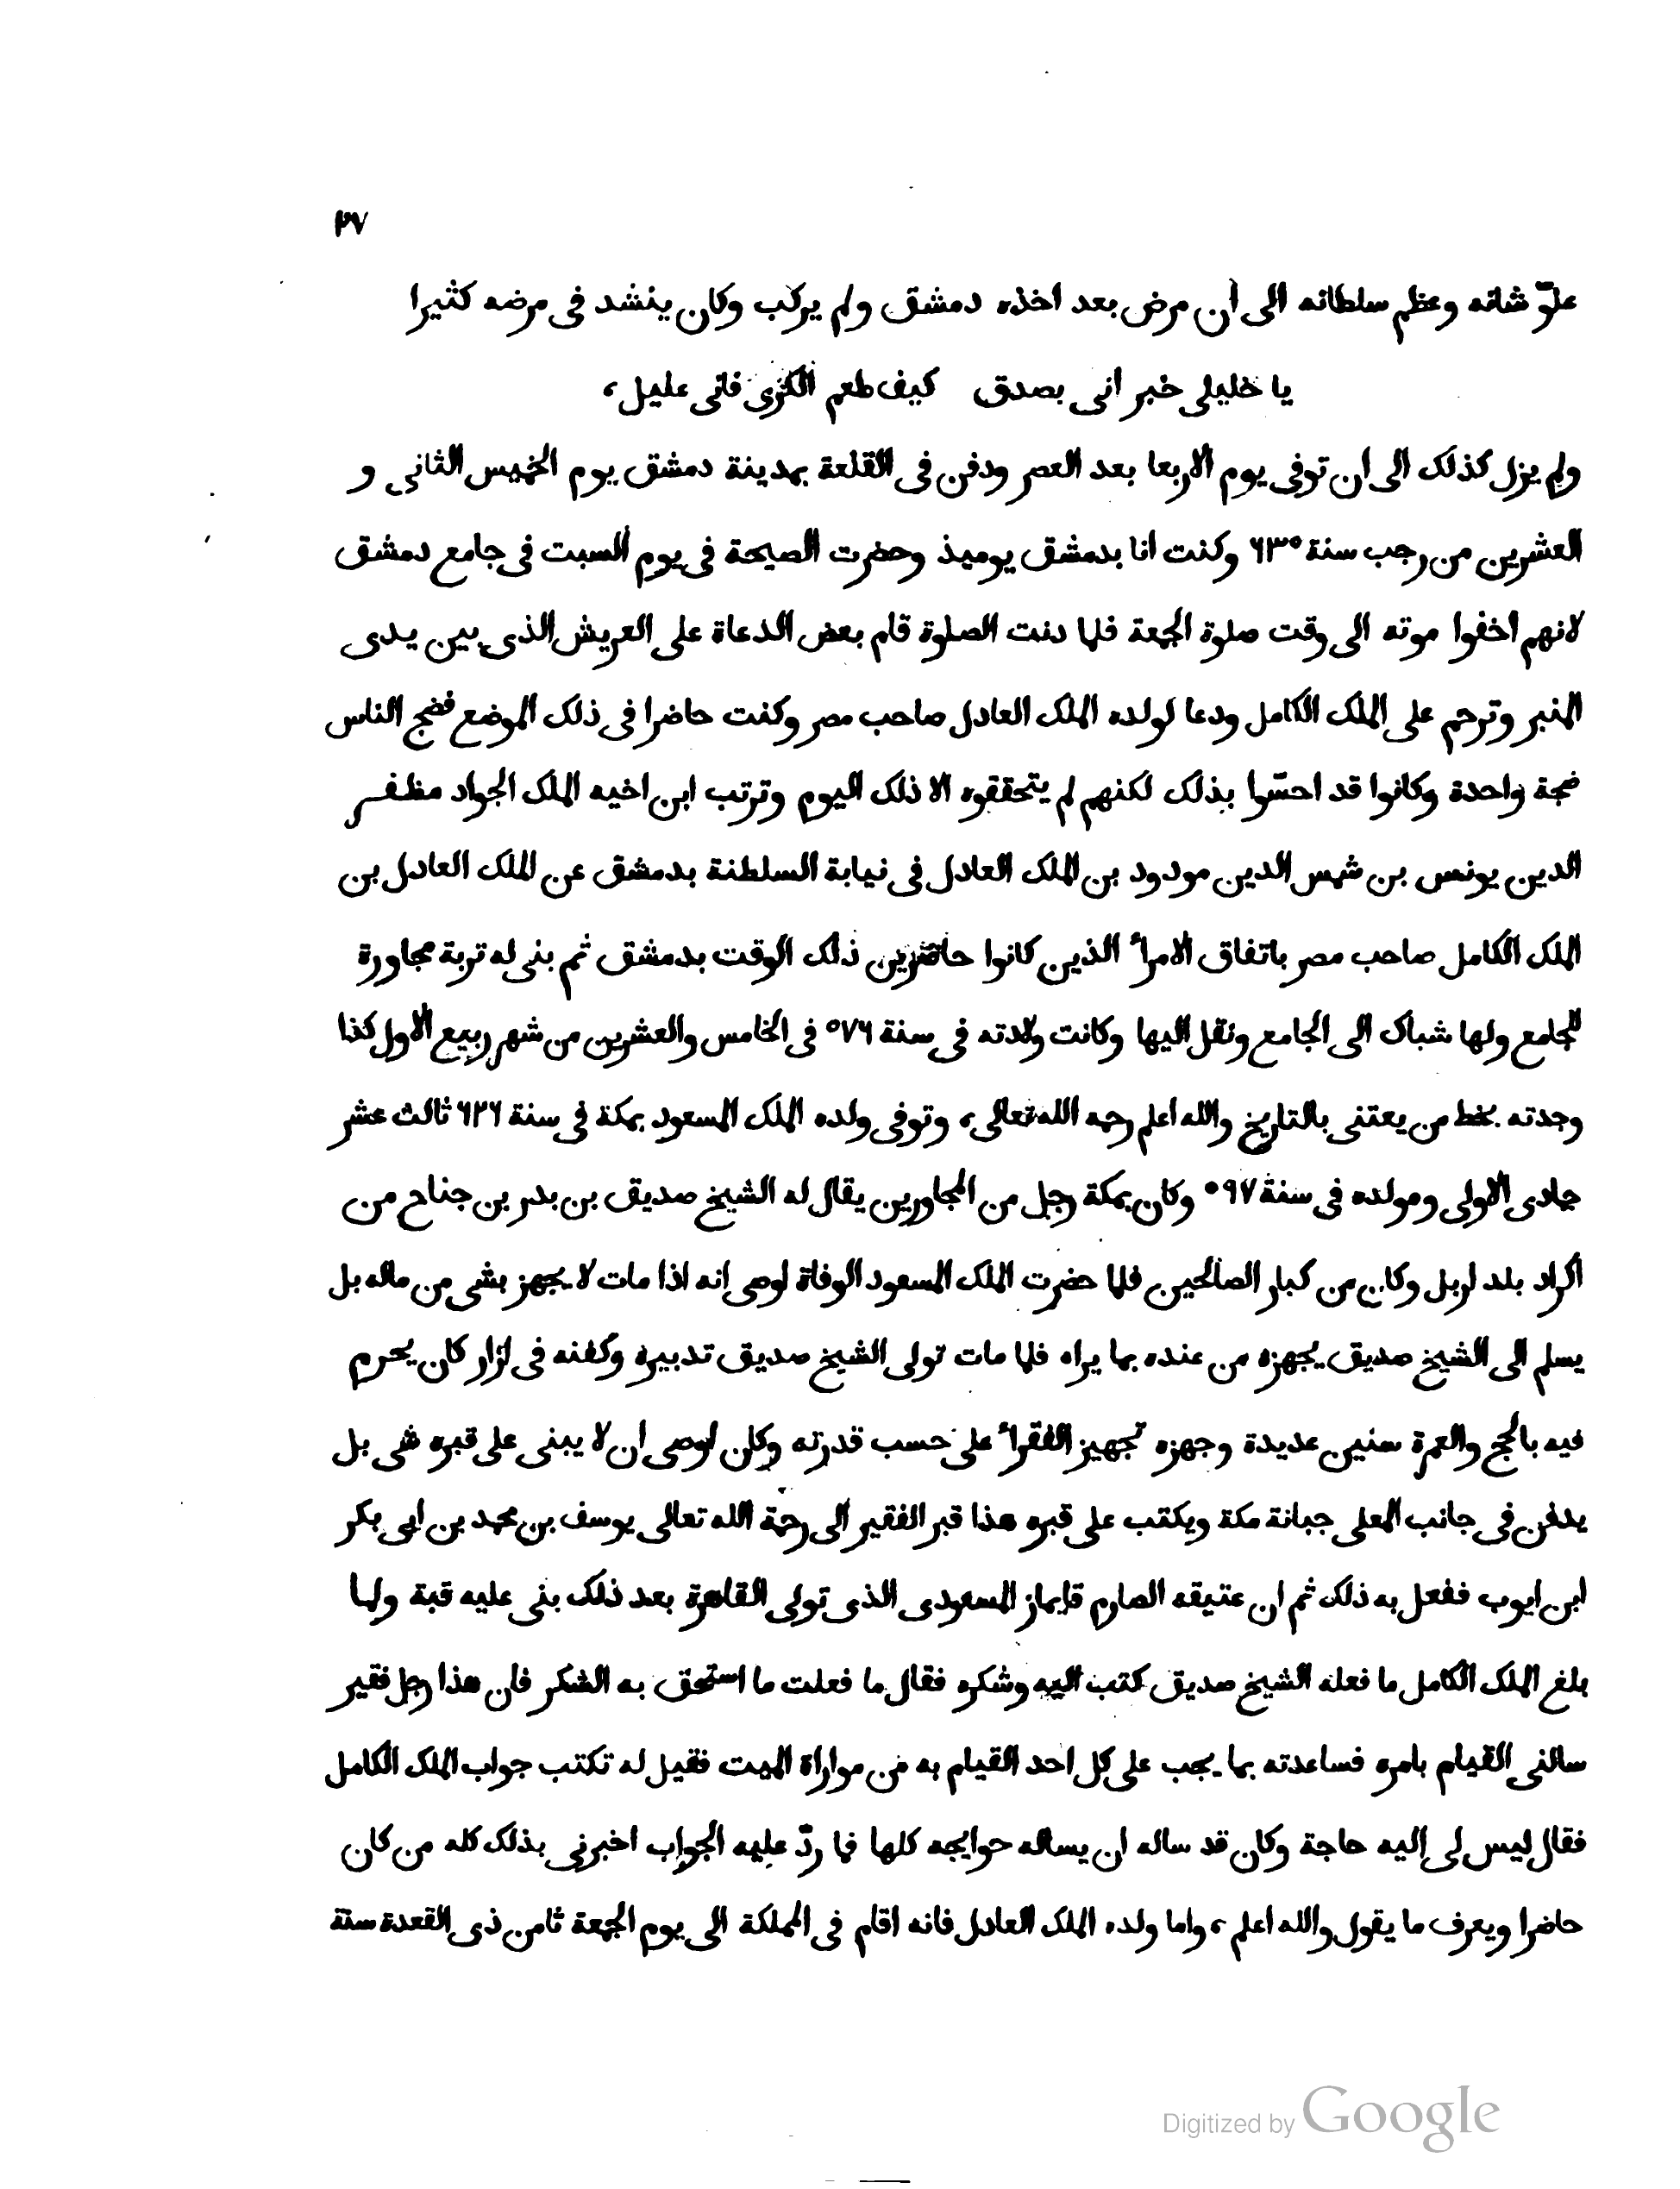 ٢٧
علوّ شانه وعظم سلطانه الى أن مرض بعد اخذه دمشق ولم يركب وكان ينشد فى مرضه كثيرا
يا خليلى خبر انى بصدق كيف طعم الكرى فانى عليل،
ولم يزل كذلك الى ان توفى يوم الاربعا بعد العصر ودفن فى القلعة بمدينة دمشق يوم الخميس الثانى و
العشرين من رجب سنة ٦٣٥ وكنت انا بدمشق يوميذ وحضرت الصيحة فى يوم السبت فى جامع دمشق
لانهم اخفوا موته الى وقت صلوة الجمعة فلما دنت الصلوة قام بعض الدعاة على العريش الذى بين يدى
المنبر وترحم على الملك الكامل ودعا لولده الملك العادل صاحب مصر وكنت حاضرا فى ذلك الموضع فضج الناس
ضجة واحدة وكانوا قد احسّوا بذلك لكنهم لم يتحققوه الا ذلك اليوم وترتب ابن اخيه الملك الجواد مظفر
الدين يونس بن شمس الدين مودود بن الملك العادل فى نيابة السلطنة بدمشق عن الملك العادل بن
الملك الكامل صاحب مصر باتفاق الامرأ الذين كانوا حاضرين ذلك الوقت بدمشق ثم بنى له تربة مجاورة
للجامع ولها شباك الى الجامع ونقل اليها وكانت ولادته فى سنة ٥٧٦ فى الخامس والعشرين من شهر ربيع الاول كذا
وجدته بخط من يعتنى بالتاريخ والله اعلم رحمه الله تعالى، وتوفى ولده الملك المسعود بمكة فى سنة ٦٢٦ ثالث عشر
جمادى الاولى ومولده فى سنة ٥٩٧ وكان بمكة رجل من المجاورين يقال له الشيخ صديق بن بدر بن جناح من
اكراد بلد اربل وكان من كبار الصالحين فلما حضرت الملك المسعود الوفاة اوصى انه اذا مات لا يجهز بشى من ماله بل
يسلم الى الشيخ صديق يجهزه من عنده بما يراه فلما مات تولى الشيخ صديق تدبيره وكفنه فى ازار كان يحرم
فيه بالحج والعمرة سنين عديدة وجهزه تجهيز الفقرأ على حسب قدرته وكان اوصى ان لا يبنى على قبره شى بل
يدفن فى جانب المعلى جبانة مكة ويكتب على قبره هذا قبر الفقير الى رحمة الله تعالى يوسف بن محمد بن ابى بكر
ابن ايوب ففعل به ذلك ثم ان عتيقه الصارم قايماز المسعودى الذى تولى القاهرة بعد ذلك بنى عليه قبة ولما
بلغ الملك الكامل ما فعله الشيخ صديق كتب اليه وشكره فقال ما فعلت ما استحق به الشكر فان هذا رجل فقير
سالنى القيام بامره فساعدته بما يجب على كل احد القيام به من مواراة الميت فقيل له تكتب جواب الملك الكامل
فقال ليس لى إليه حاجة وكان قد ساله ان يساله حوايجه كلها فما ردّ عليه الجواب اخبرنى بذلك كله من كان
حاضرا ويعرف ما يقول والله اعلم، واما ولده الملك العادل فانه اقام فى المملكة الى يوم الجمعة ثامن ذى القعدة سنة
Digitized by Google